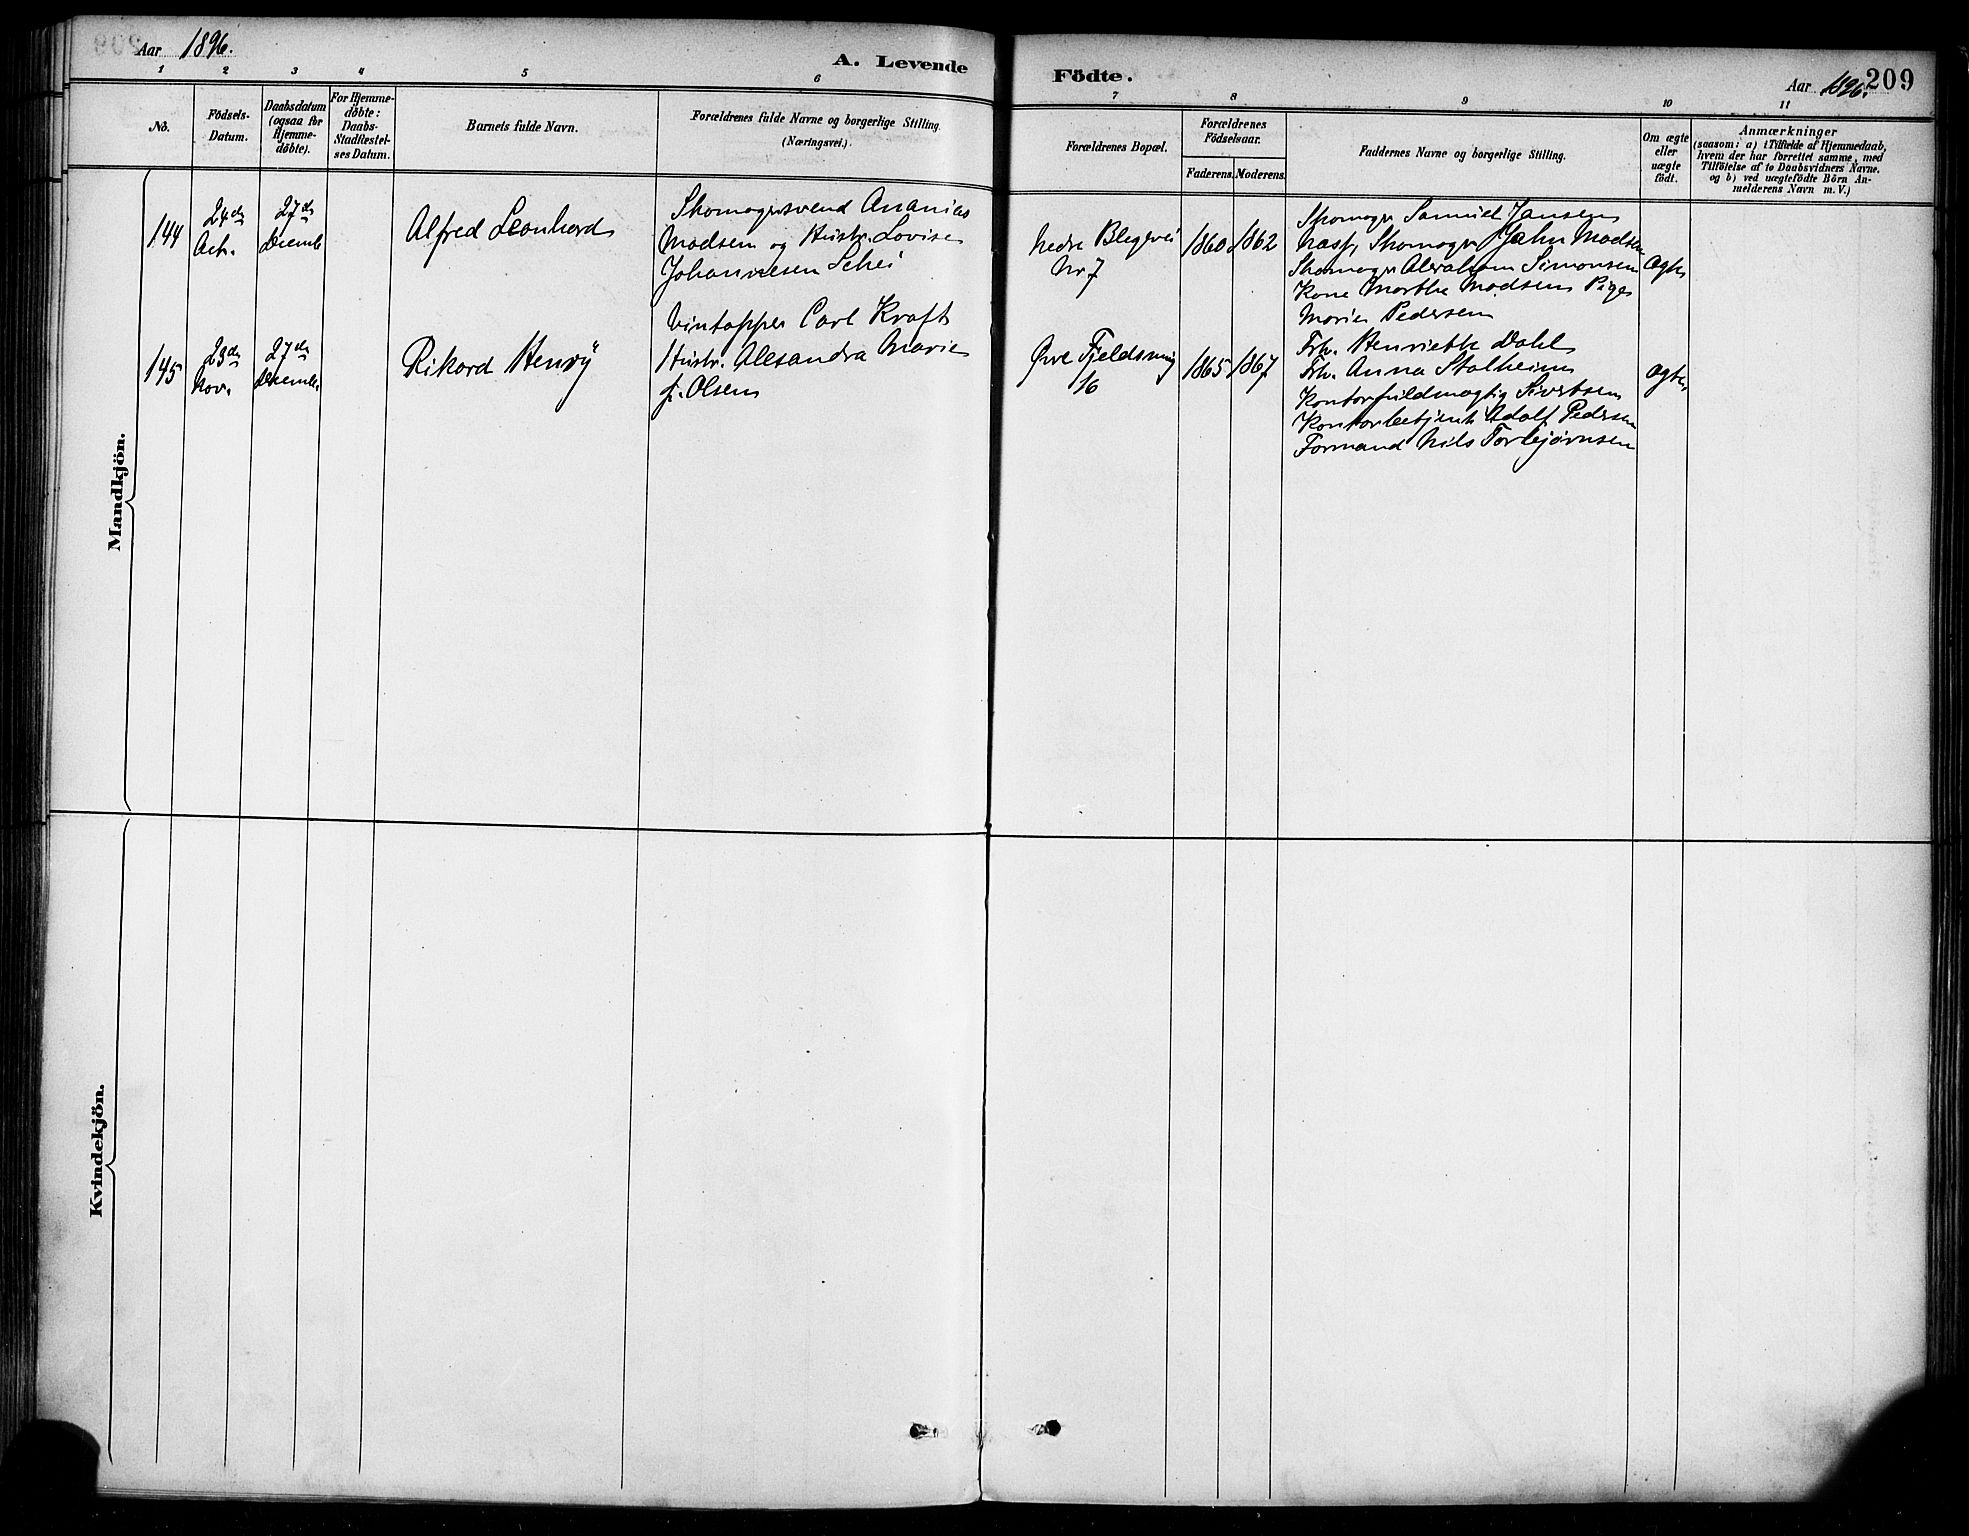 Aar 1896.
A. Levende Födte.
Aar 1896.
209
1 2 3 4 5 6 7 8 9 10 11
No.
Födsels-
Datum.
Daabsdatum
(ogsaa för
Hjemme-
döbte).
For Hjemme-
döbte:
Daabs-
Stadfæstel-
ses Datum.
Barnets fulde Navn.
Forældrenes fulde Navne og borgerlige Stilling.
(Næringsvei.)
Forældrenes Bopæl.
Forældrenes
Födselsaar.
Faderens. Moderens.
Faddernes Navne og borgerlige Stilling.
Om ægte
eller
uægte
födt.
Anmærkninger
(saasom: a) i Tilfælde af Hjemmedaab,
hvem der har forrettet samme, med
Tilföielse af to Daabsvidners Navne,
og b) ved uægtefödte Börn An-
melderens Navn m. V.)
Mandkjön.
144
24de
Oct.
27de
Decemb
Alfred Leonhard
Skomagersvend Ananias
Madsen og Hustr. Lovise
Johannesen Schei
Nedre Blegevei
Nr 7
1860 1862
Skomager Samuel Jansen
Næsf, Skomager John Madsen
Skomager Abraham Simonsen
Kone Marthe Madsen Pige
Marie Pedersen
Ægte
145
23de
Nov.
27de
Decemb.
Rikard Henry
Vintapper Carl Kraft
Hustr. Alexandra Marie
f. Olsen
Øvre Fjeldsmug
16
1865 1867
Frk. Henriette Dahl
Frk. Anna Stalheim
Kontorfuldmægtig Sivertsen
Kontorbetjent Adolf Pedersen
Formand Nils Torbjørnsen
Ægte
Kvindekjön.